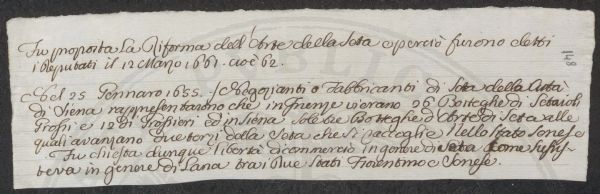 Fu proposta La Riforma dell'Arte della Seta e perciò furono eletti
i Deputati il 12 Marzo 1661. cioè 62.
Nel 25 Gennaro 1655. i Negozianti o Fabbricanti di Seta della Città
di Siena rappresentarono che in Firenze vi erano 26 Botteghe di Setaioli
Grossi e 12 di Grossieri ed in Siena sole tre Botteghe d'Arte di Seta alle
quali avanzano due terzi della Seta che si raccoglie Nello Stato Sanese
Fu chiesta dunque libertà di commercio in genere di Seta come sussis-
teva in genere di Lana tra i due Stati Fiorentino e Sanese.
148